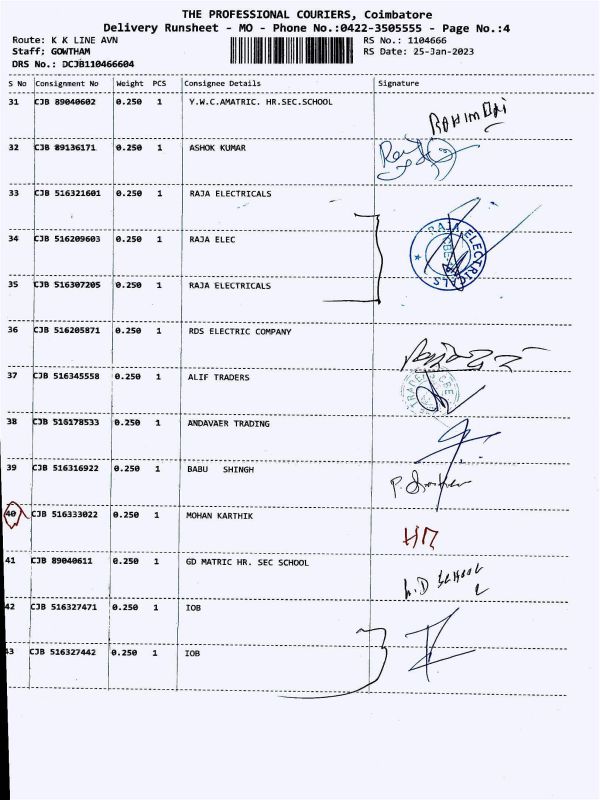 THE PROFESSIONAL COURIERS, Coimbatore
Delivery Runsheet - MO - Phone No.:0422-3505555 - Page No.:4
Route: K K LINE AVN RS No.: 1104666
Staff: GOWTHAM RS Date: 25-Jan-2023
DRS No.: DCJB110466604
S No Consignment No Weight PCS Consignee Details Signature
31 CJB 89040602 0.250 1 Y.W.C.AMATRIC. HR.SEC.SCHOOL
32 CJB 89136171 0.250 1 ASHOK KUMAR
33 CJB 516321601 0.250 1 RAJA ELECTRICALS
34 CJB 516209603 0.250 1 RAJA ELEC RAJA ELECTRICALS
35 CJB 516307205 0.250 1 RAJA ELECTRICALS
36 CJB 516205871 0.250 1 RDS ELECTRIC COMPANY
37 CJB 516345558 0.250 1 ALIF TRADERS
38 CJB 516178533 0.250 1 ANDAVAER TRADING
39 CJB 516316922 0.250 1 BABU SHINGH
40 CJB 516333022 0.250 1 MOHAN KARTHIK
41 CJB 89040611 0.250 1 GD MATRIC HR. SEC SCHOOL G.D SCHOOL
42 CJB 516327471 0.250 1 IOB
43 CJB 516327442 0.250 1 IOB